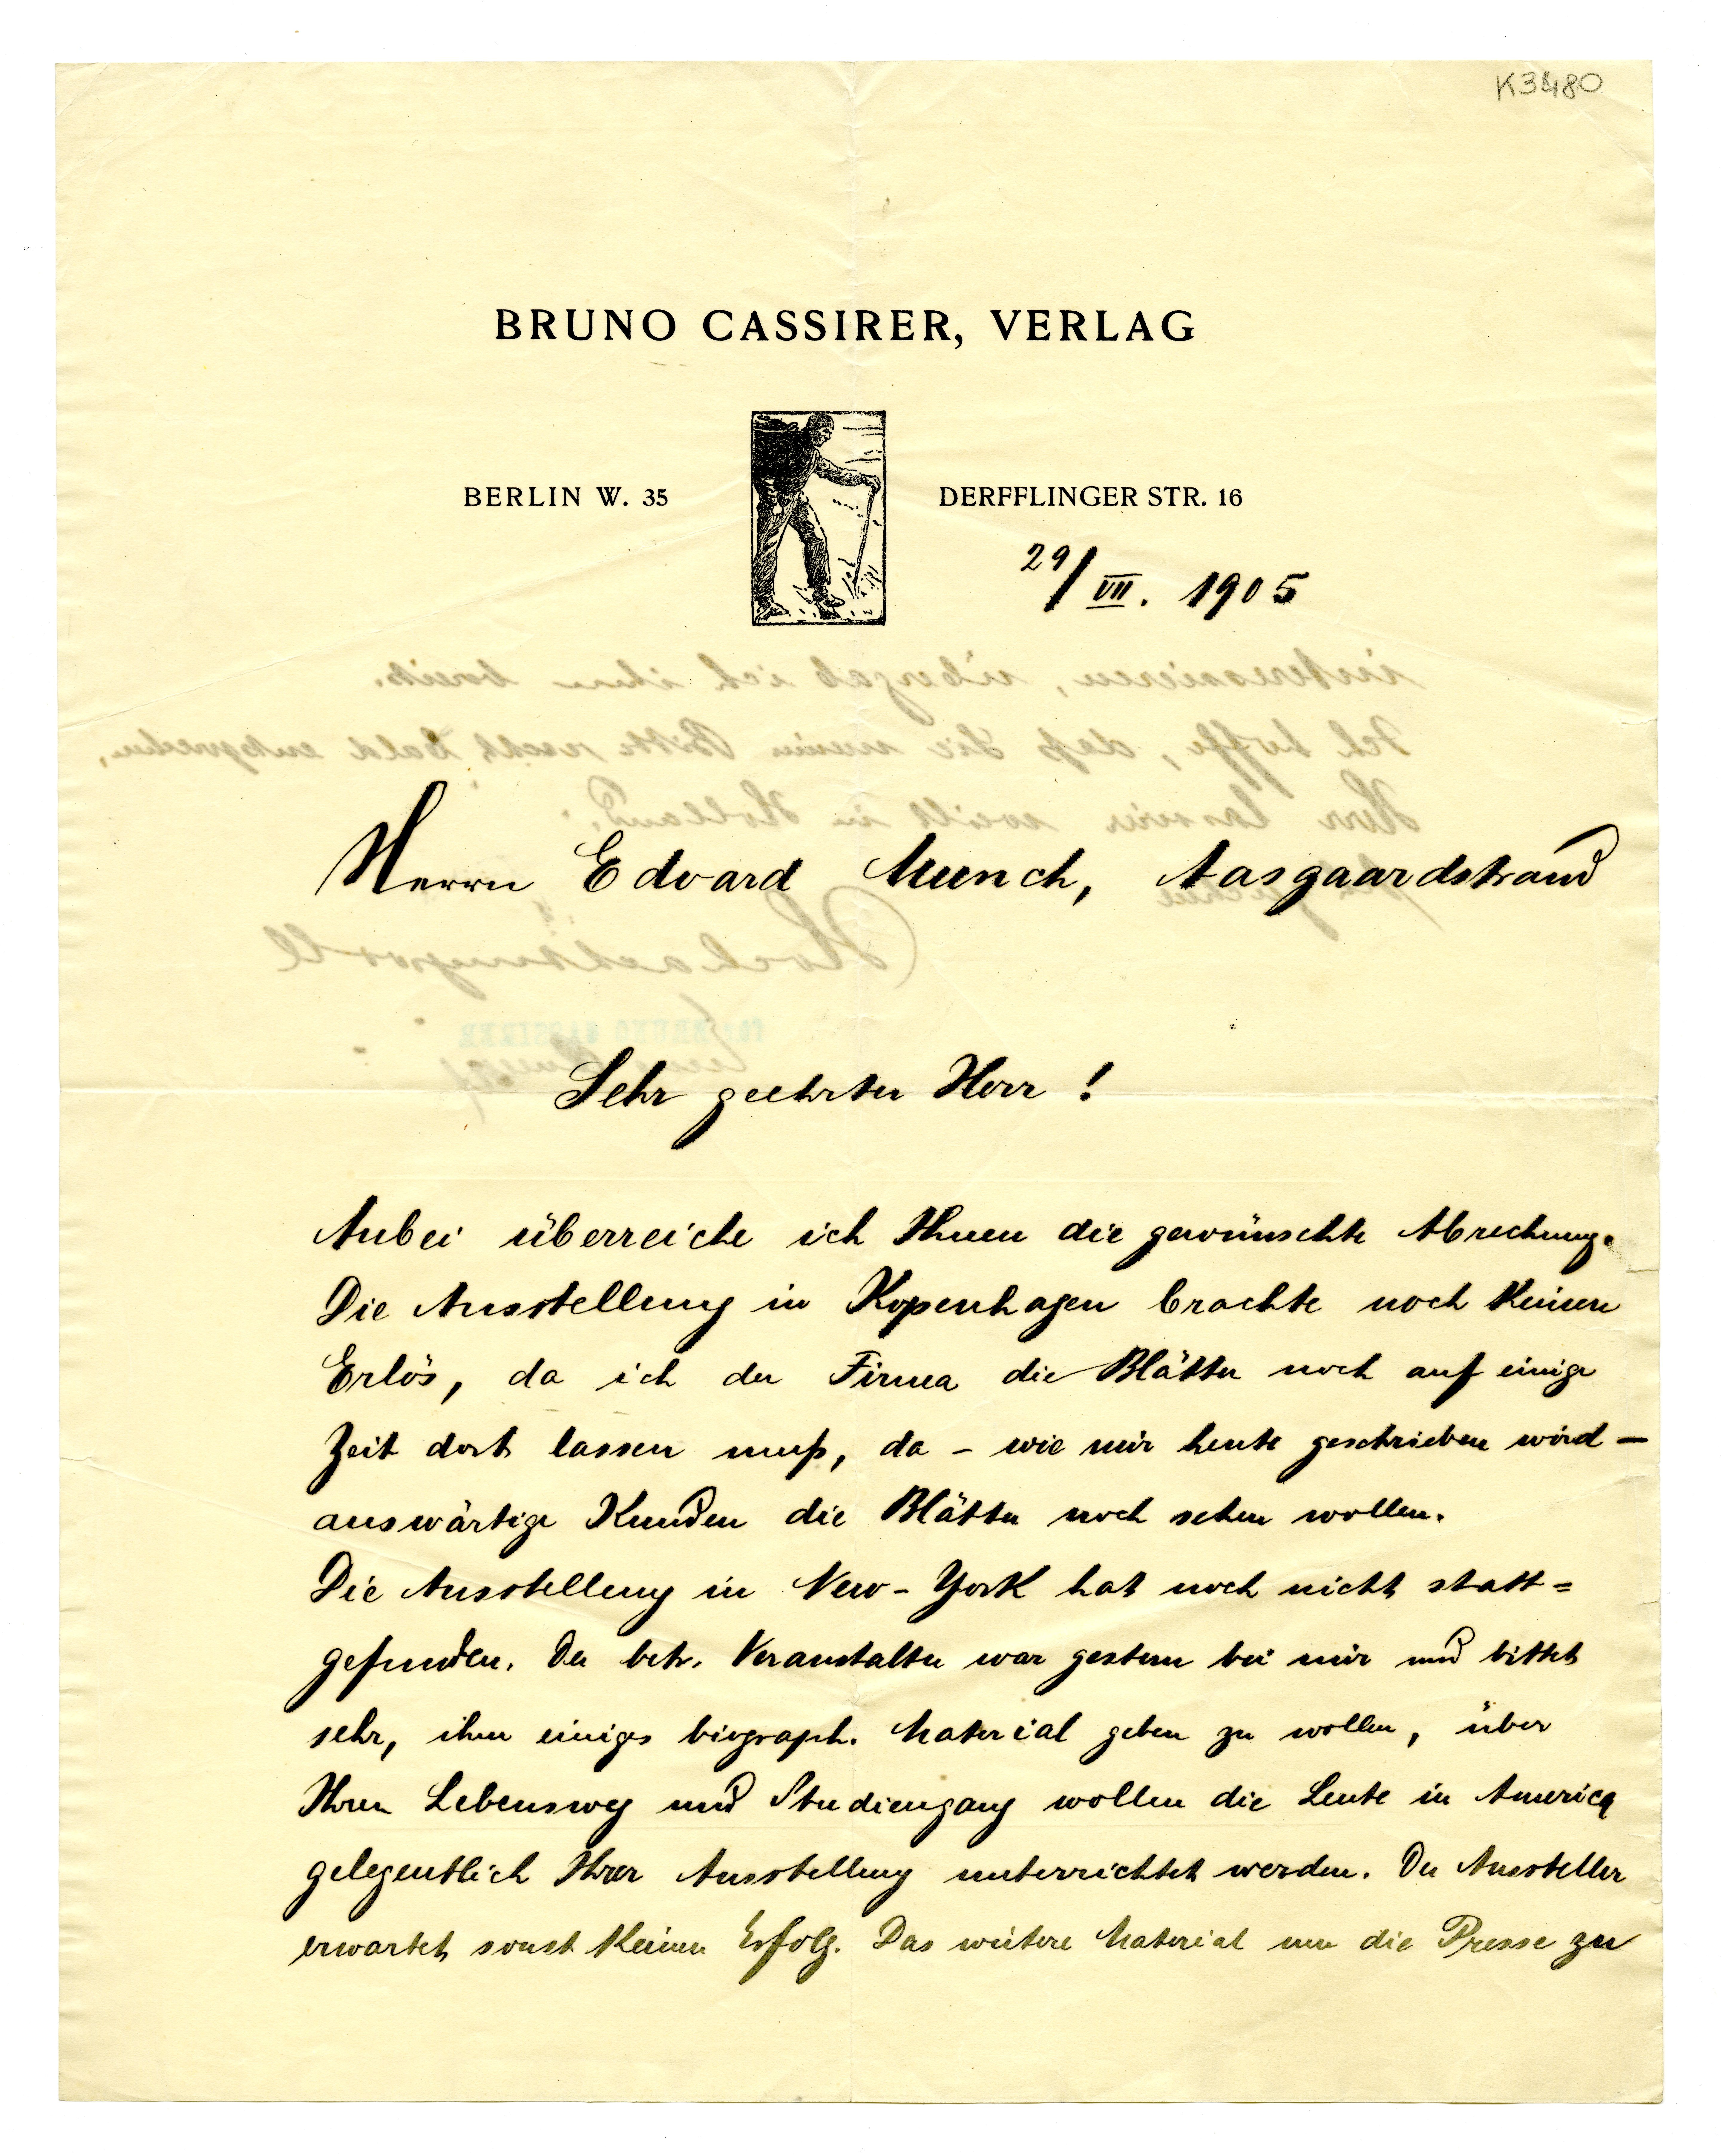 K3480
BRUNO CASSIRER, VERLAG
BERLIN W. 35
DERFFLINGER STR. 16
29/VII. 1905
Herrn Edvard Munch, Aasgaardstrand
Sehr geehrter Herr !
Anbei überreiche ich Ihnen die gewünschte Abrechnung.
Die Ausstellung in Kopenhagen brachte noch keinen
Erlös, da ich der Firma die Blätter noch auf einige
Zeit dort lassen muß, da – wie mir heute geschrieben wird –
auswärtige Kunden die Blätter noch sehen wollen.
Die Ausstellung in New-York hat noch nicht statt=
gefunden. Der betr. Veranstalter war gestern bei mir und bittet
sehr, ihm einiges biograph. Material geben zu wollen, über
Ihren Lebensweg und Studiengang wollen die Leute in America
gelegentlich Ihrer Ausstellung unterrichtet werden. Der Aussteller
erwartet sonst keinen Erfolg. Das weitere Material um die Presse zu
interessieren, übergab ich ihm bereits.
Ich hoffe, daß Sie meiner Bitte recht bald entsprechen,
Herr Cassirer weilt in Holland.
Hochachtungsvoll
BRUNO CASSIRER